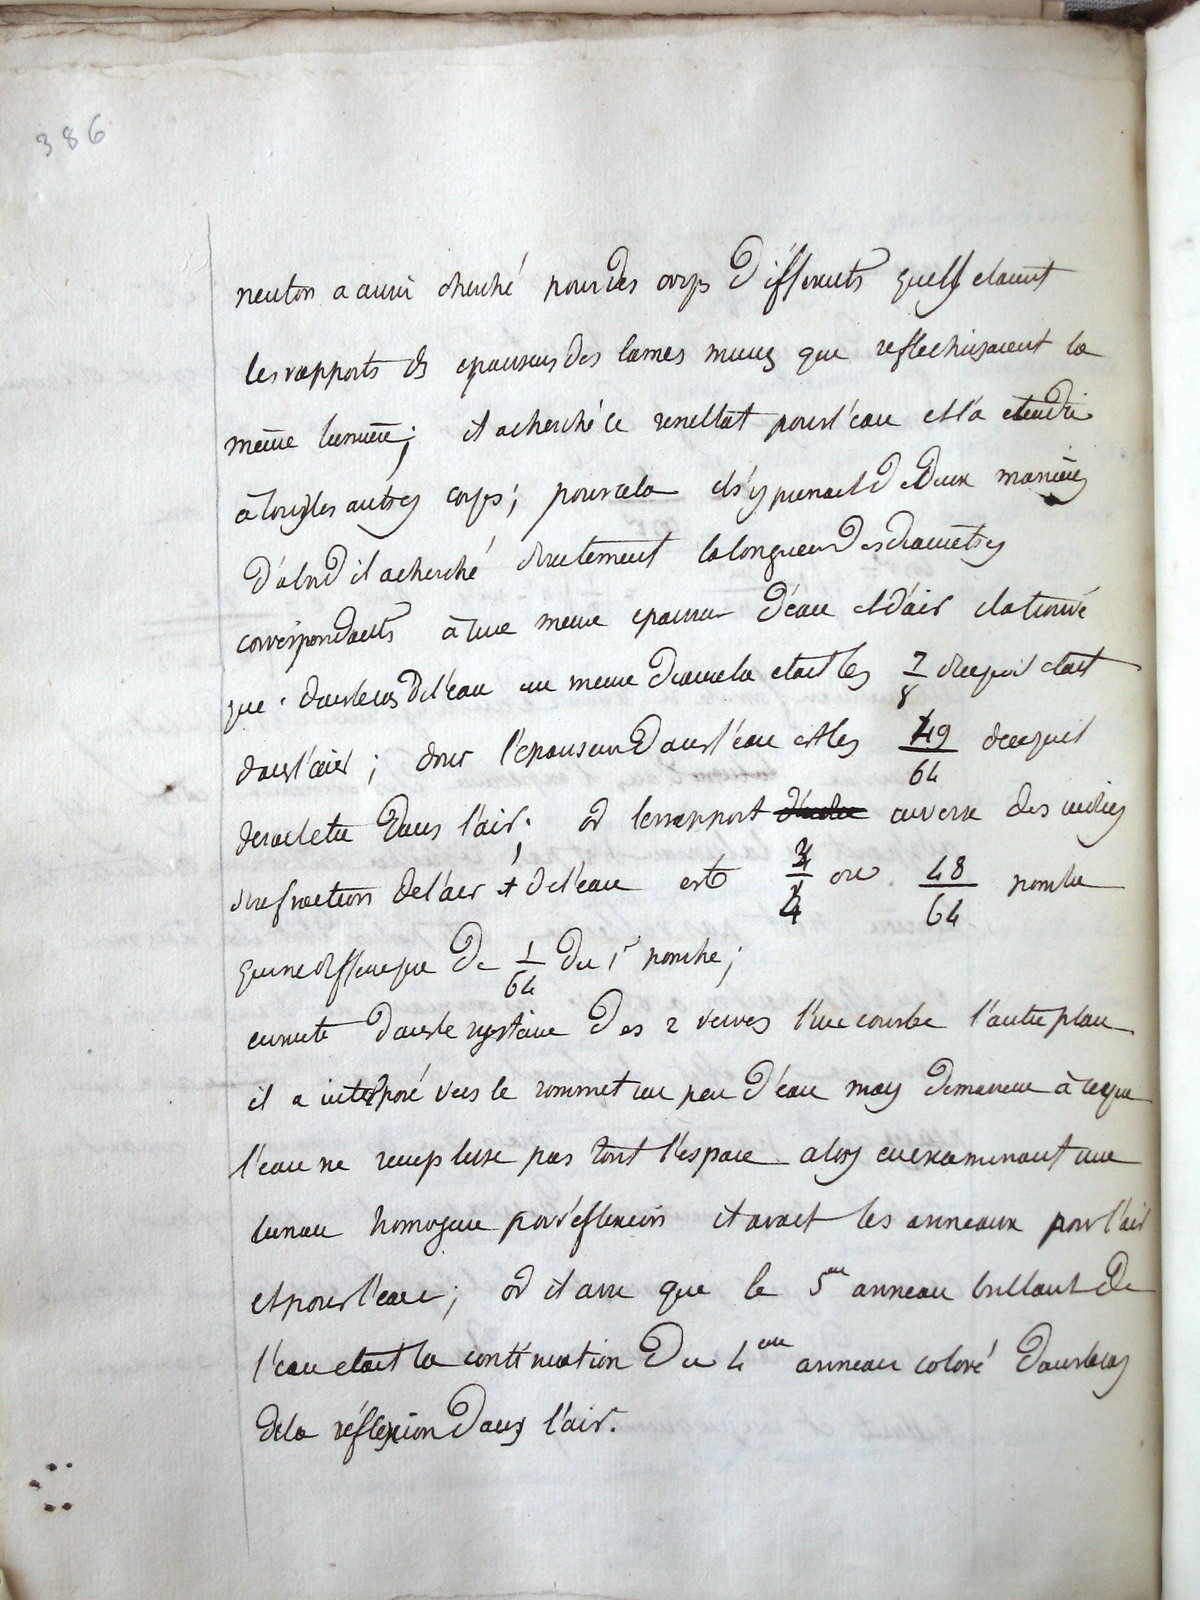 386
neuton a aussi cherché pour des corps différents quells etaient
les rapports des epaisseurs des lames minces qui reflechissaient la
même lumiere; il a cherché ce resultat pour l'eau et l'a etendu
à tous les autres corps; pour cela il s'y prenait de deux manieres
d'abord il a cherché directement la longueur des diametres
correspondants à une meme epaisseur d'eau et d'air il a trouvé
que dans le cas de l'eau un meme diametre etait les 7/8 de ce qu'il etait
dans l'air; donc l'epaisseur dans l'eau est les 49/64 de ce qu'il
devait etre dans l'air. or le rapport inverse des indices
de refraction de l'air et de l'eau est 3/4 ou 48/64 nombre
qui ne differe que de 1/64 du 1er nombre;
ensuite dans le systeme des 2 verres l'un courbe l'autre plan
il a interposé vers le sommet un peu d'eau mais de maniere à ce que
l'eau ne remplisse pas tout l'espace alors en examinant une
lumiere homogene par réflexion il avait les anneaux pour l'air
et pour l'eau; or il a vu que le 5me anneau brillant de
l'eau etait la continuation du 4me anneau coloré dans le cas
de la réflexion dans l'air.